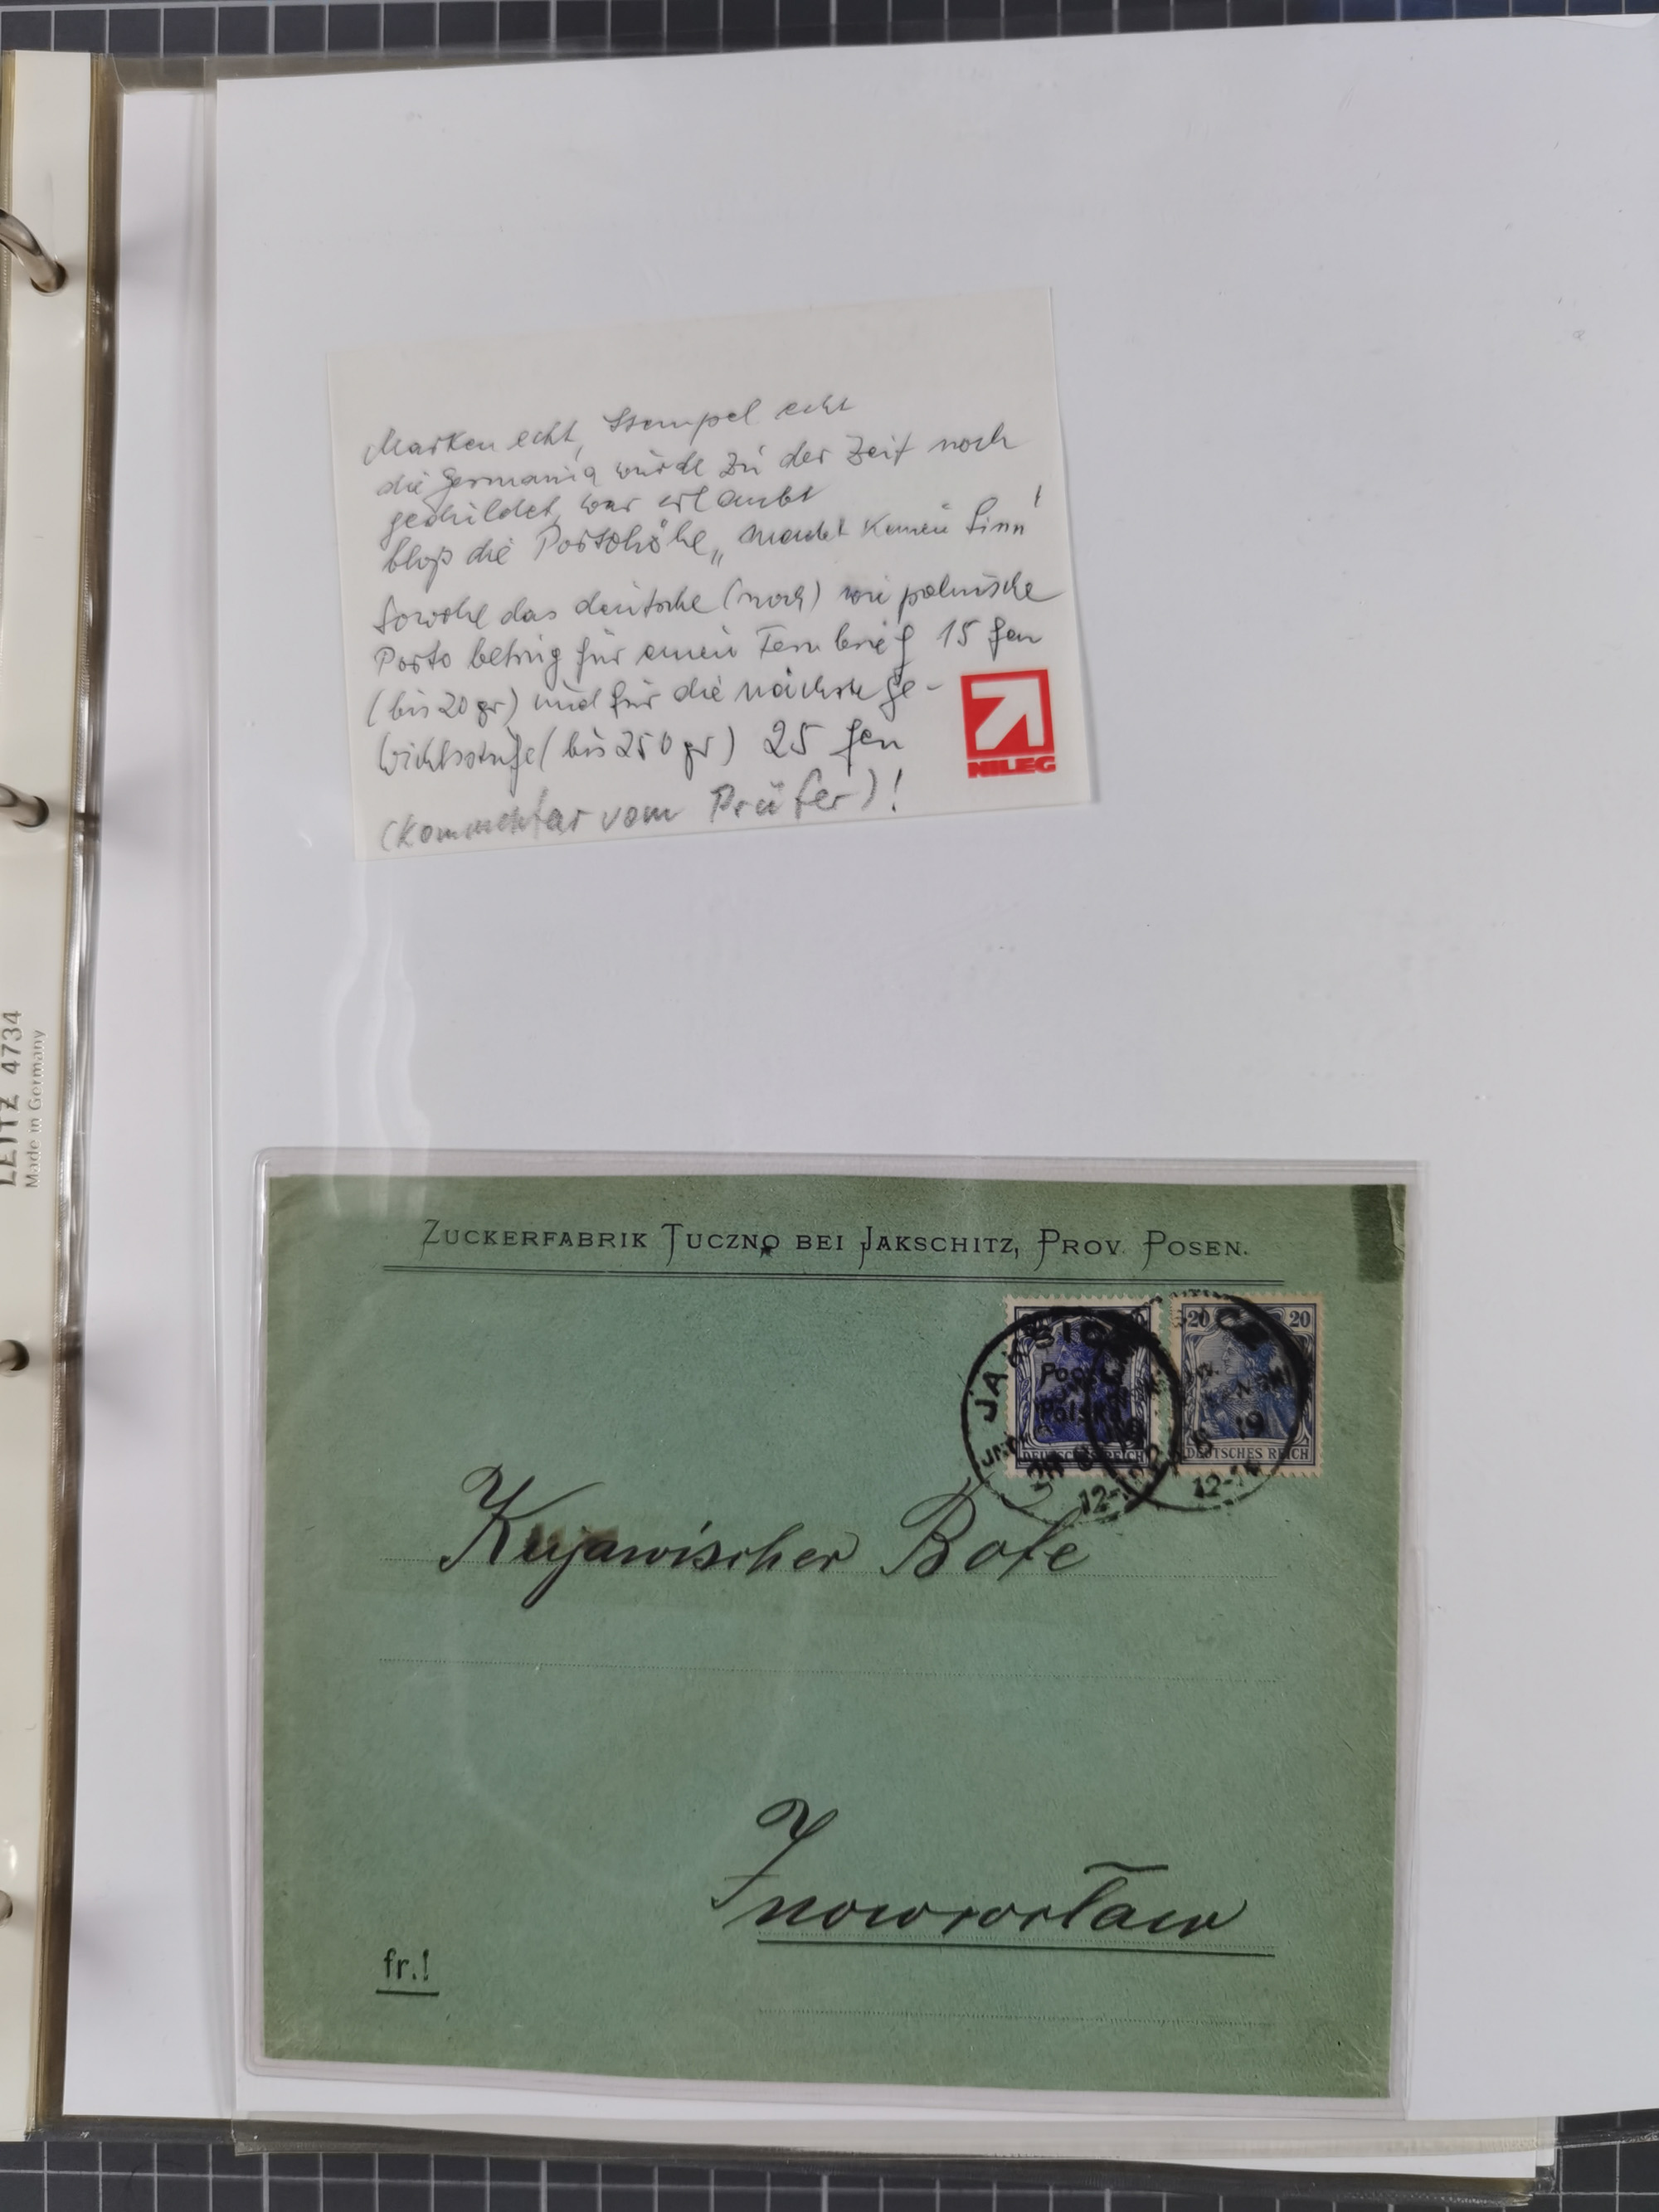 Marken echt, Stempel echt
die Germania würde zu der Zeit noch
geduldet, war erlaubt
bloß die Portohöhe „macht keinen Sinn"
Sowohl das deutsche (noch) wie polnische
Porto betrug für einen Fernbrief 15 fen
(bis 20 gr) und für die nächste Ge-
wichtsstufe (bis 250 gr) 25 fen
(Kommentar vom Prüfer)!
NILEG
LEITZ 4734
Made in Germany
ZUCKERFABRIK TUCZNO BEI JAKSCHITZ, PROV. POSEN.
Poczta
Polska
DEUTSCHES REICH
20 20
DEUTSCHES REICH
8 19
12-
Kujawischer Bote
Inowrocław
fr.!